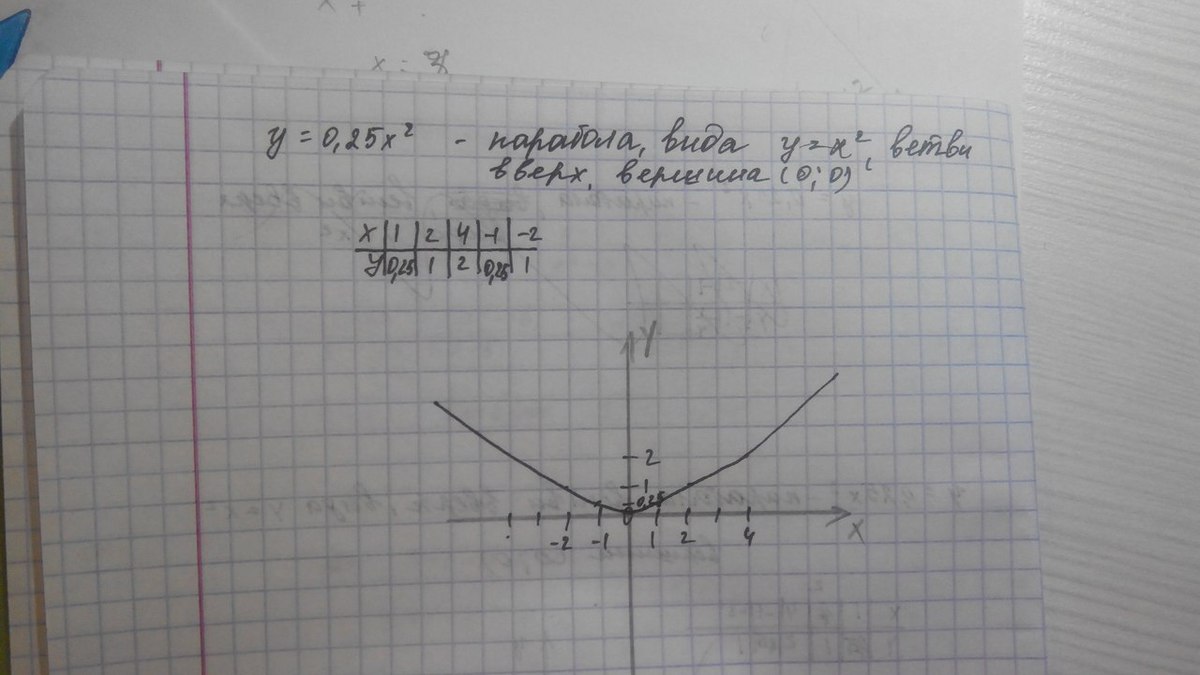 + x
x = y
y = 0,25x² - парабола, вида y = x², ветви
вверх, вершина (0; 0)
x | 1 | 2 | 4 | -1 | -2
y | 0,25 | 1 | 2 | 0,25 | 1
y
2
1
0,25
0
-2 -1 1 2 4 x